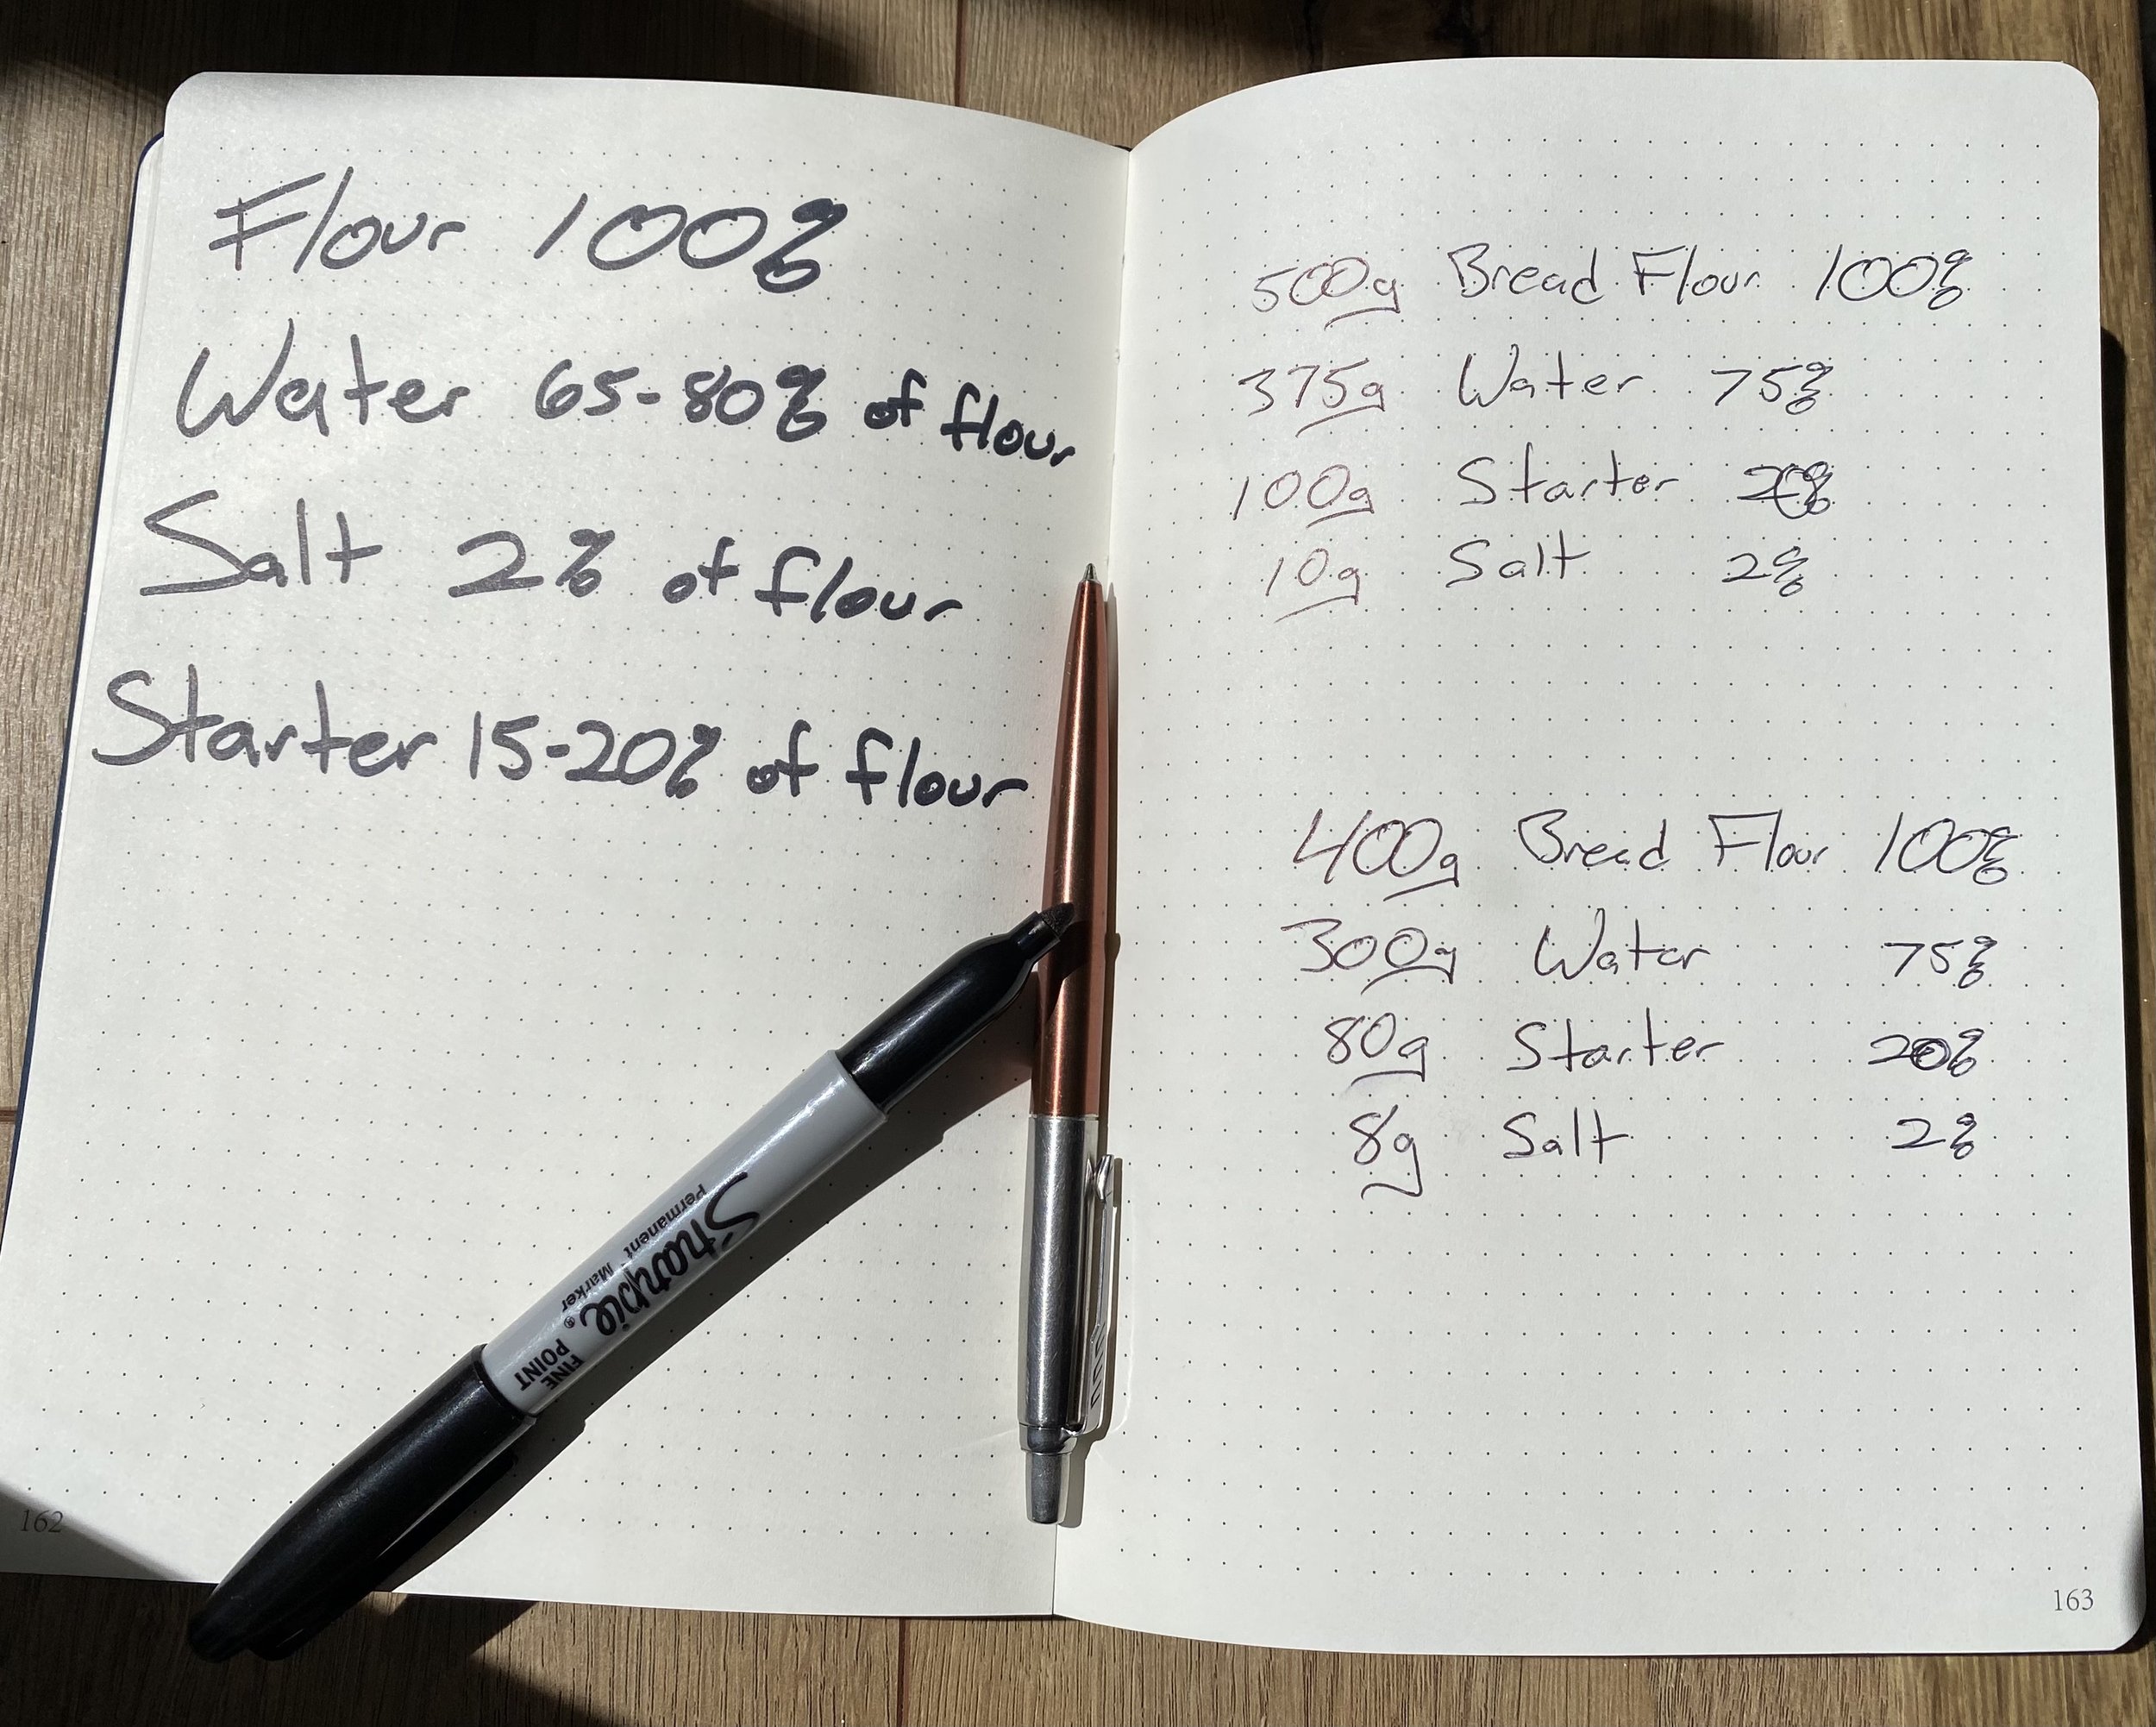 Flour 100%
Water 65-80% of flour
Salt 2% of flour
Starter 15-20% of flour
Sharpie
Permanent Marker
FINE
POINT
162
500g Bread Flour 100%
375g Water 75%
100g Starter 20%
10g Salt 2%
400g Bread Flour 100%
300g Water 75%
80g Starter 20%
8g Salt 2%
163